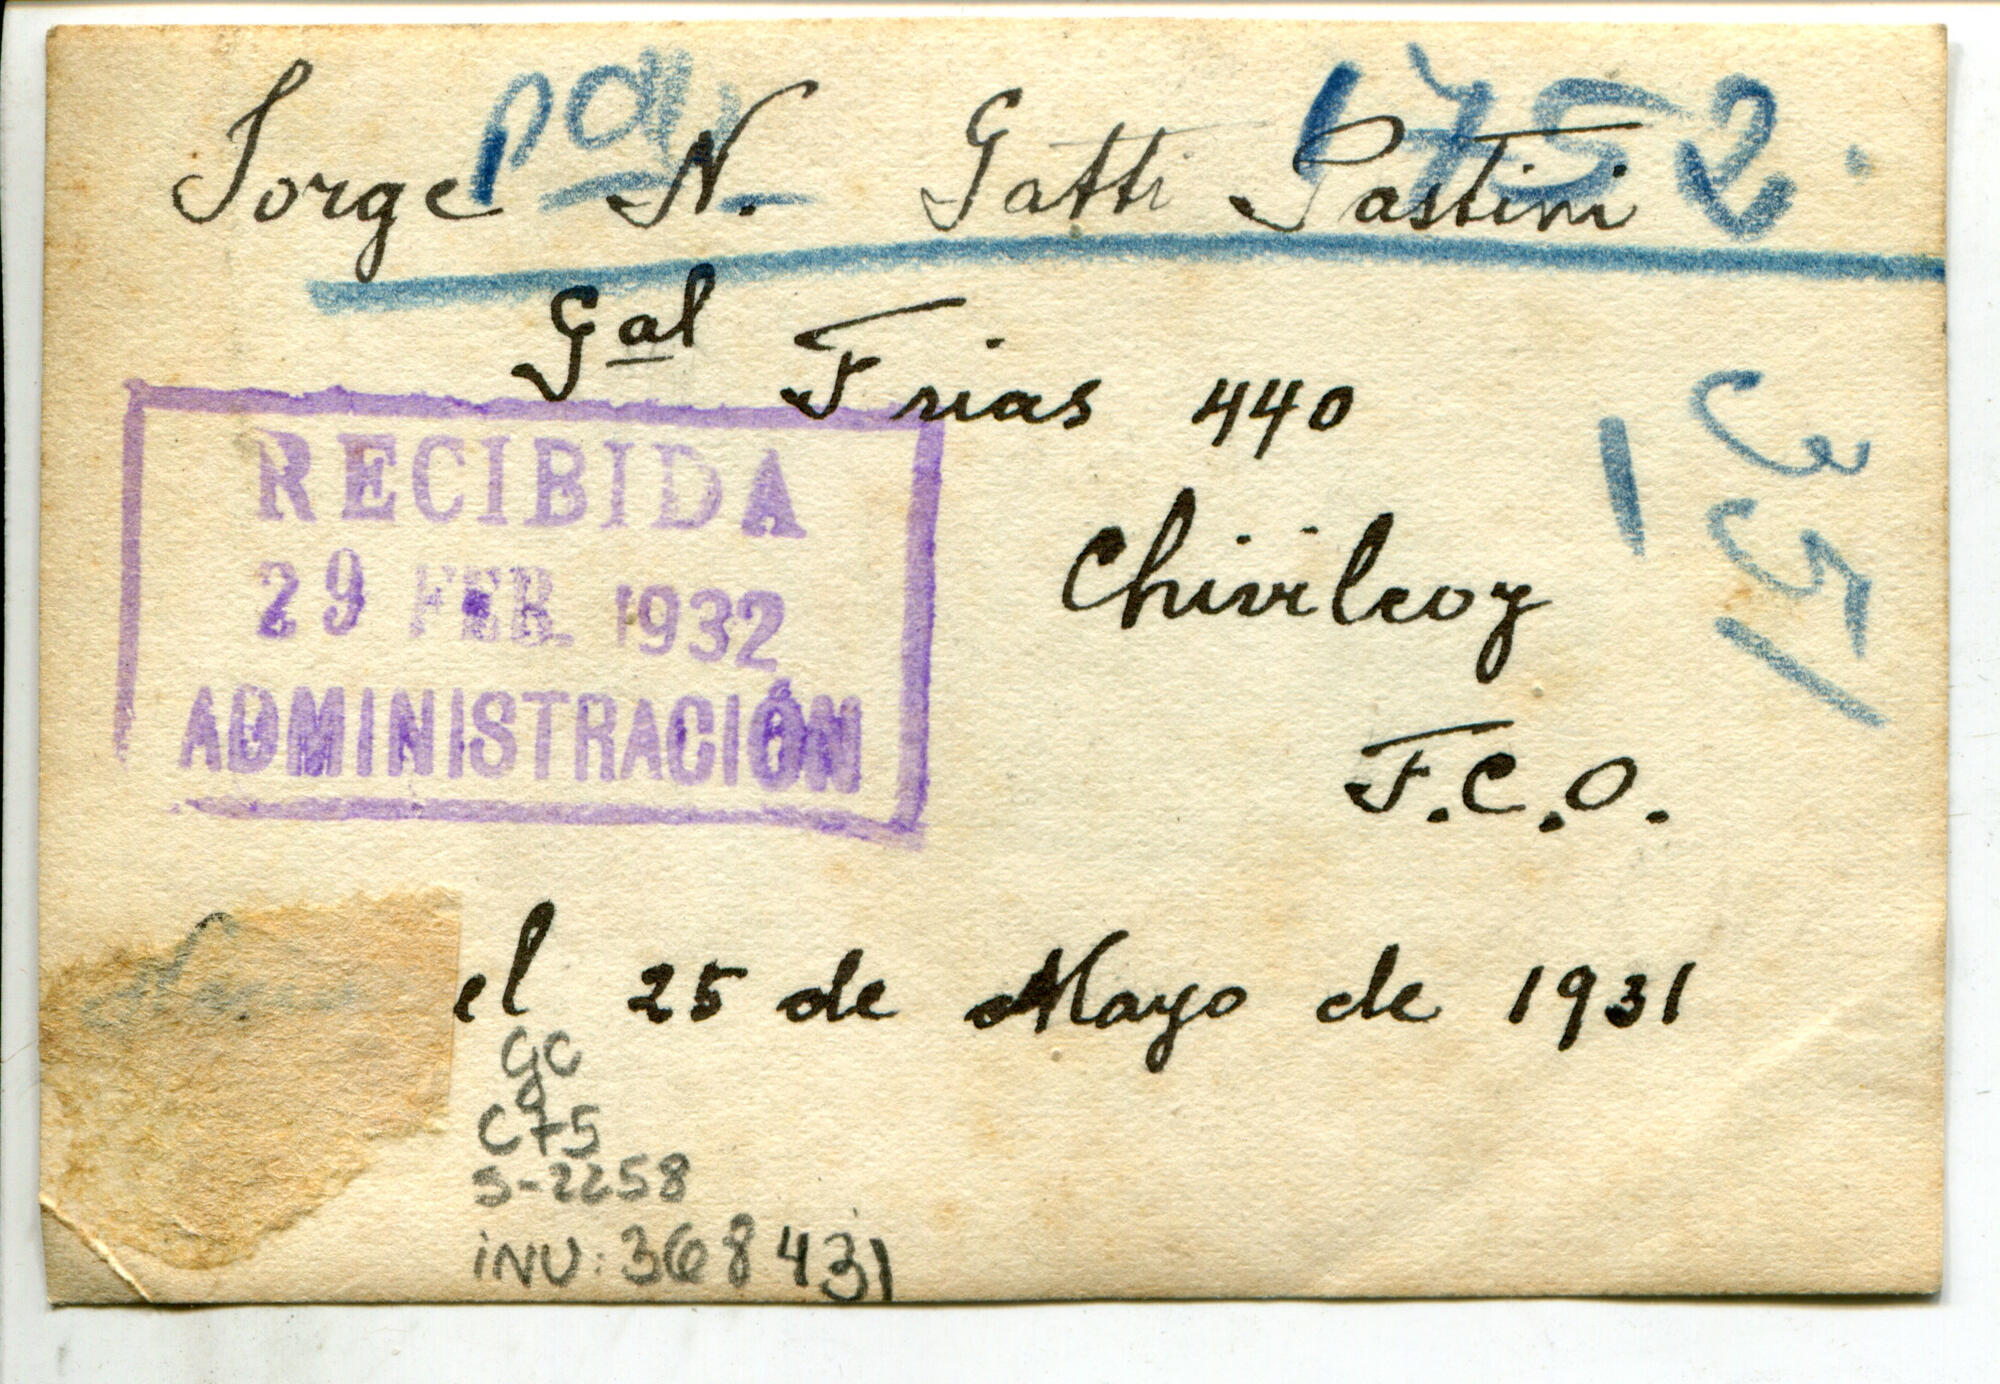 Jorge N. Gatti Pastini
1752
Gal Frias 440
Chivilcoy
F.C.O.
351
RECIBIDA
29 FEB. 1932
ADMINISTRACIÓN
el 25 de Mayo de 1931
GC
C75
S-2258
INV: 368431